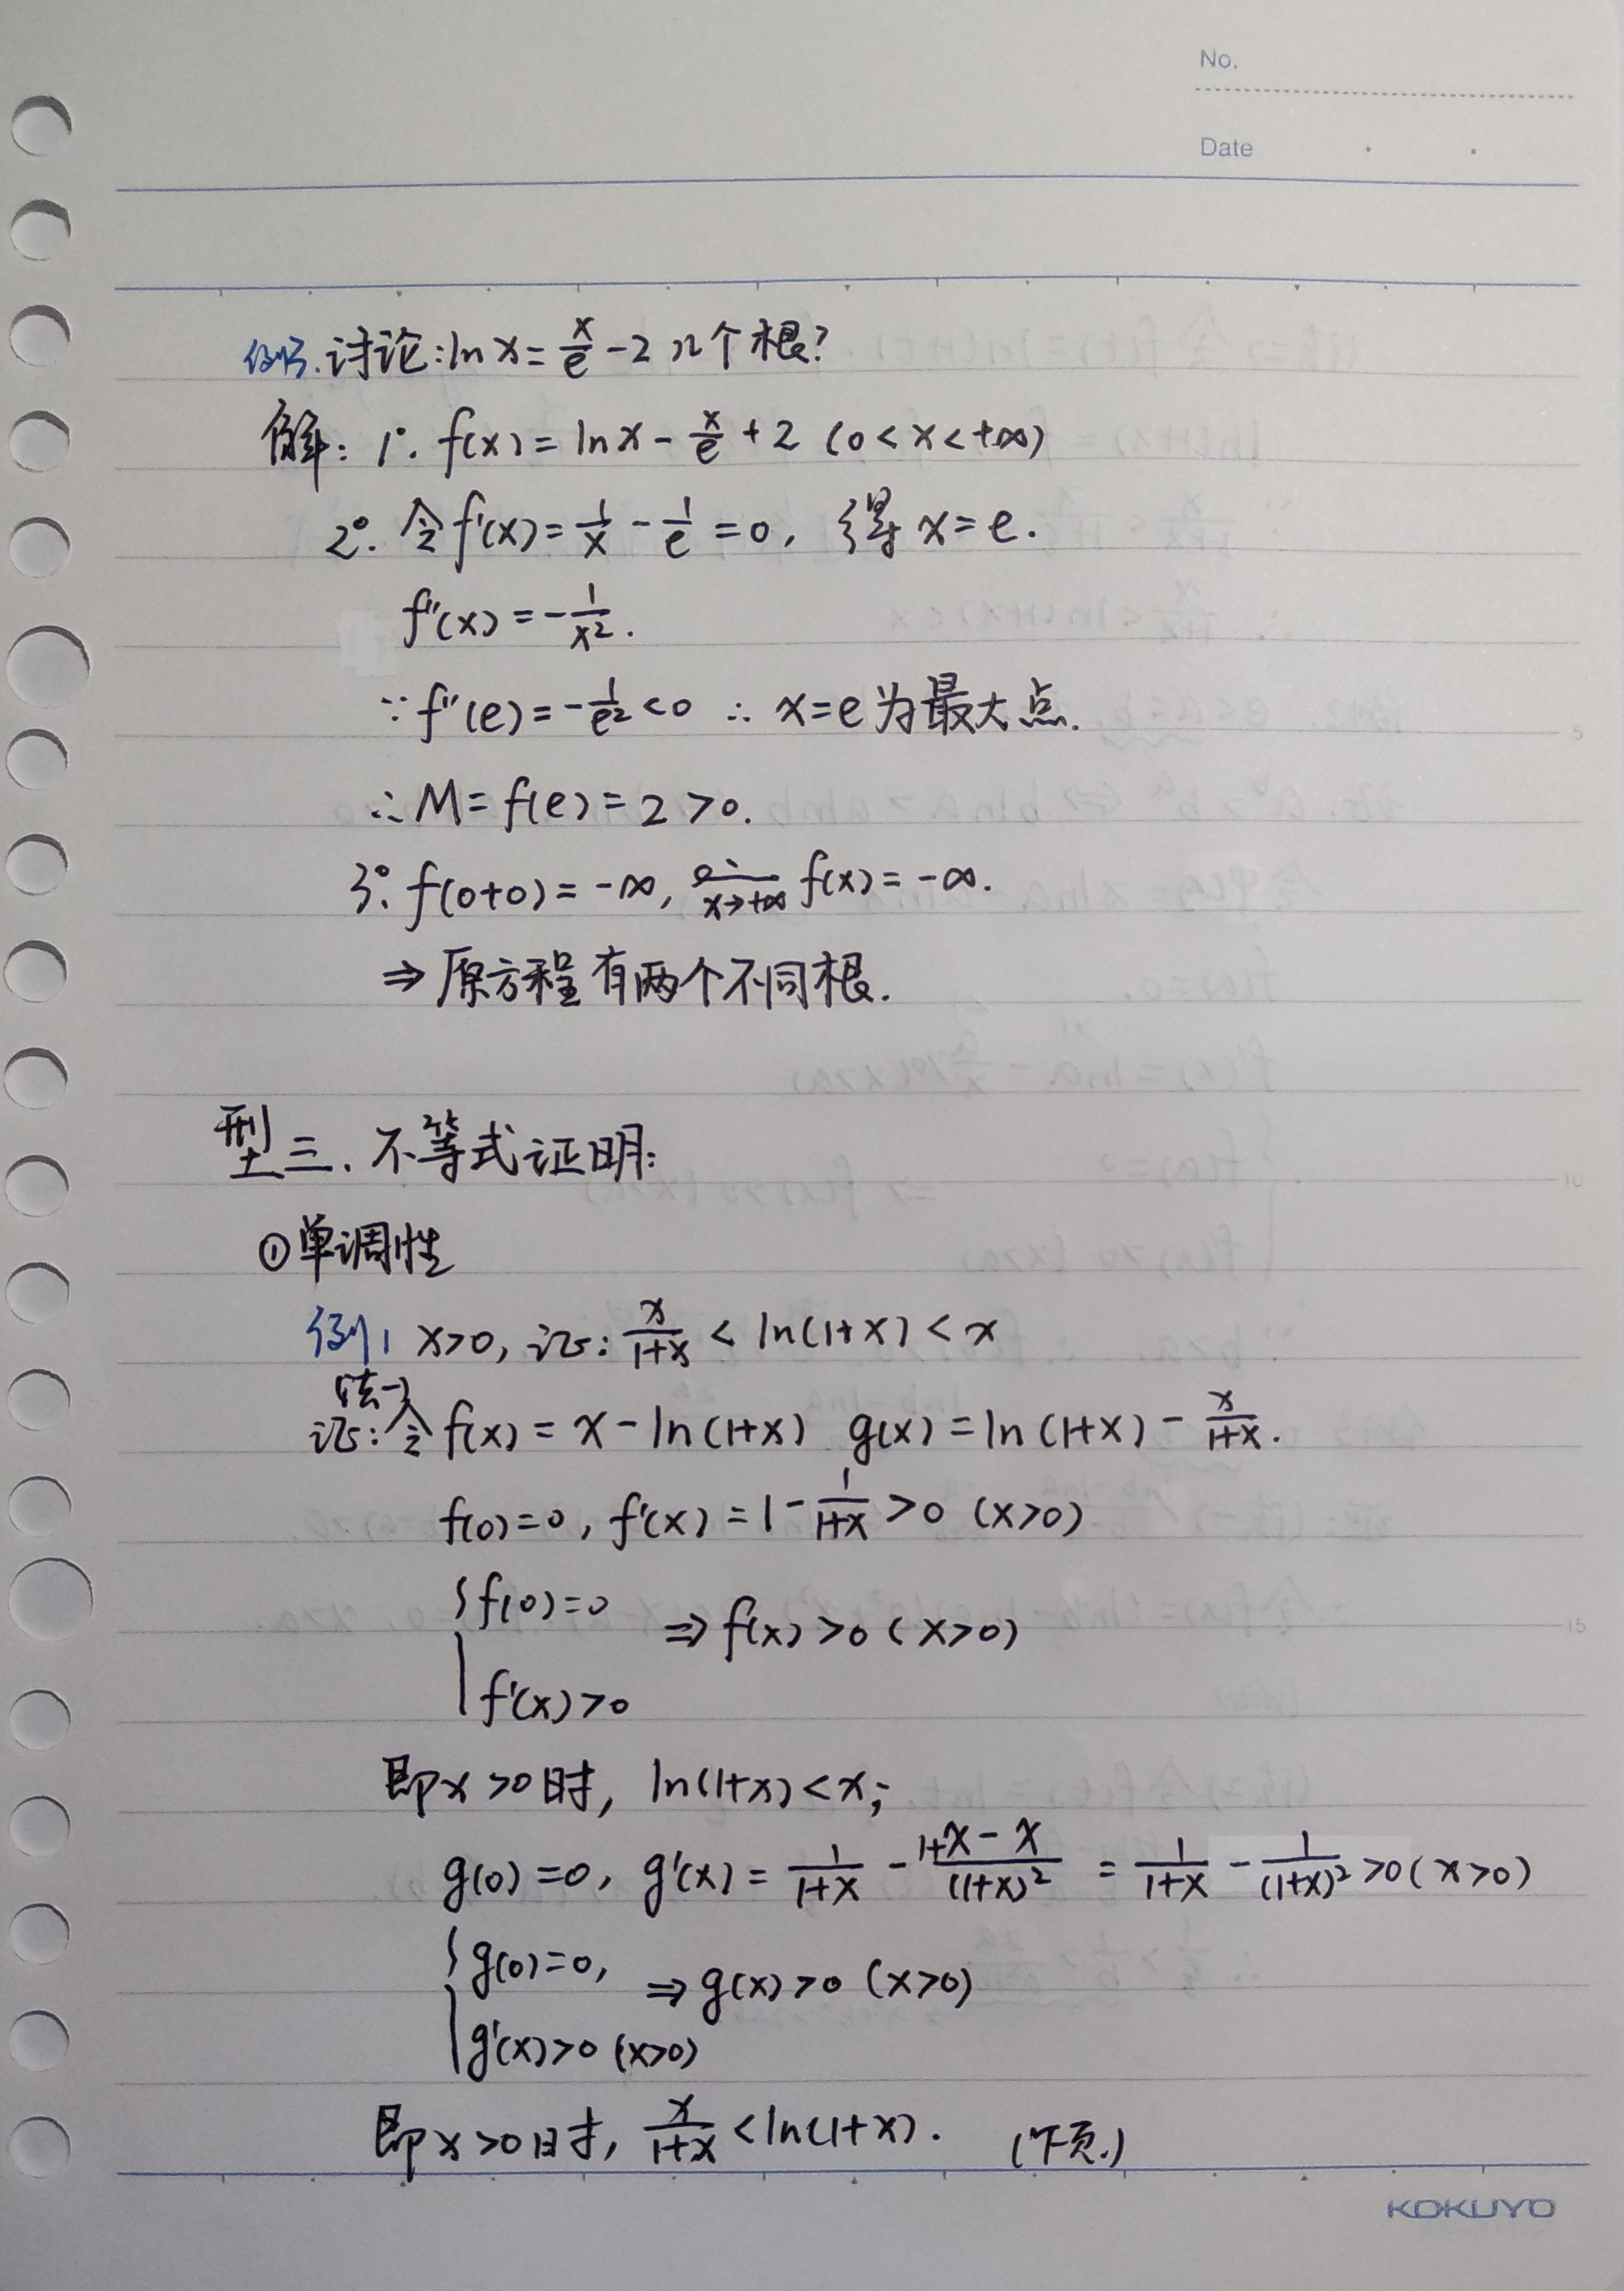 No.
Date
例3. 讨论: ln x = x/e - 2 几个根?
解: 1°. f(x) = ln x - x/e + 2 (0 < x < +∞)
2°. 令 f'(x) = 1/x - 1/e = 0, 得 x = e.
f''(x) = -1/x².
∵ f''(e) = -1/e² < 0 ∴ x = e 为最大点.
∴ M = f(e) = 2 > 0.
3°. f(0+0) = -∞, lim x→+∞ f(x) = -∞.
⇒ 原方程有两个不同根.
型三. 不等式证明:
① 单调性
例1 x>0, 证: x/(1+x) < ln(1+x) < x
(法一)
证: 令 f(x) = x - ln(1+x) g(x) = ln(1+x) - x/(1+x).
f(0)=0, f'(x) = 1 - 1/(1+x) > 0 (x>0)
{ f(0)=0
⇒ f(x) > 0 (x>0)
f'(x) > 0
即 x>0时, ln(1+x) < x;
g(0) = 0, g'(x) = 1/(1+x) - (1+x-x)/(1+x)² = 1/(1+x) - 1/(1+x)² > 0 (x>0)
{ g(0)=0,
⇒ g(x) > 0 (x>0)
g'(x) > 0 (x>0)
即 x>0时, x/(1+x) < ln(1+x). (下页.)
5
10
15
KOKUYO